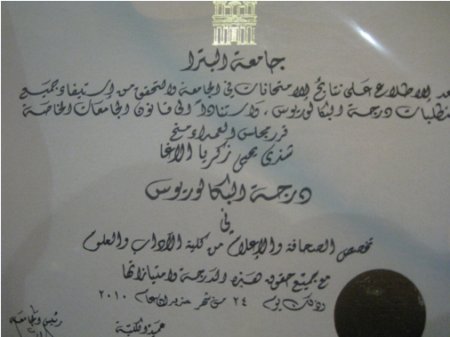 جامعة البترا
بعد الاطلاع على نتائج الامتحانات في الجامعة والتحقق من استيفاء جميع
متطلبات درجة البكالوريوس، واستناداً الى قانون الجامعات الخاصة
قرر مجلس العمداء منح
شذى يحيى زكريا الاغا
درجة البكالوريوس
في
تخصص الصحافة والإعلام من كلية الآداب والعلوم
مع جميع حقوق هذه الدرجة وامتيازاتها
وذلك يوم ٢٤ من شهر حزيران عام ٢٠١٠
عميد الكلية
رئيس الجامعة